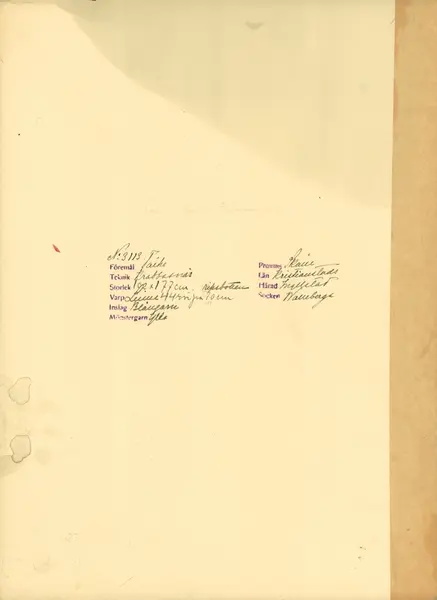 No 3113
Föremål
Teknik Krabbasnår
Storlek 192 x 177 cm. ripsbotten
Varp Linne 44 rör på 10 cm
Inslag Blångarn
Mönstergarn Ylle
Provins Skåne
Län Kristianstads
Härad Ingelstad
Socken